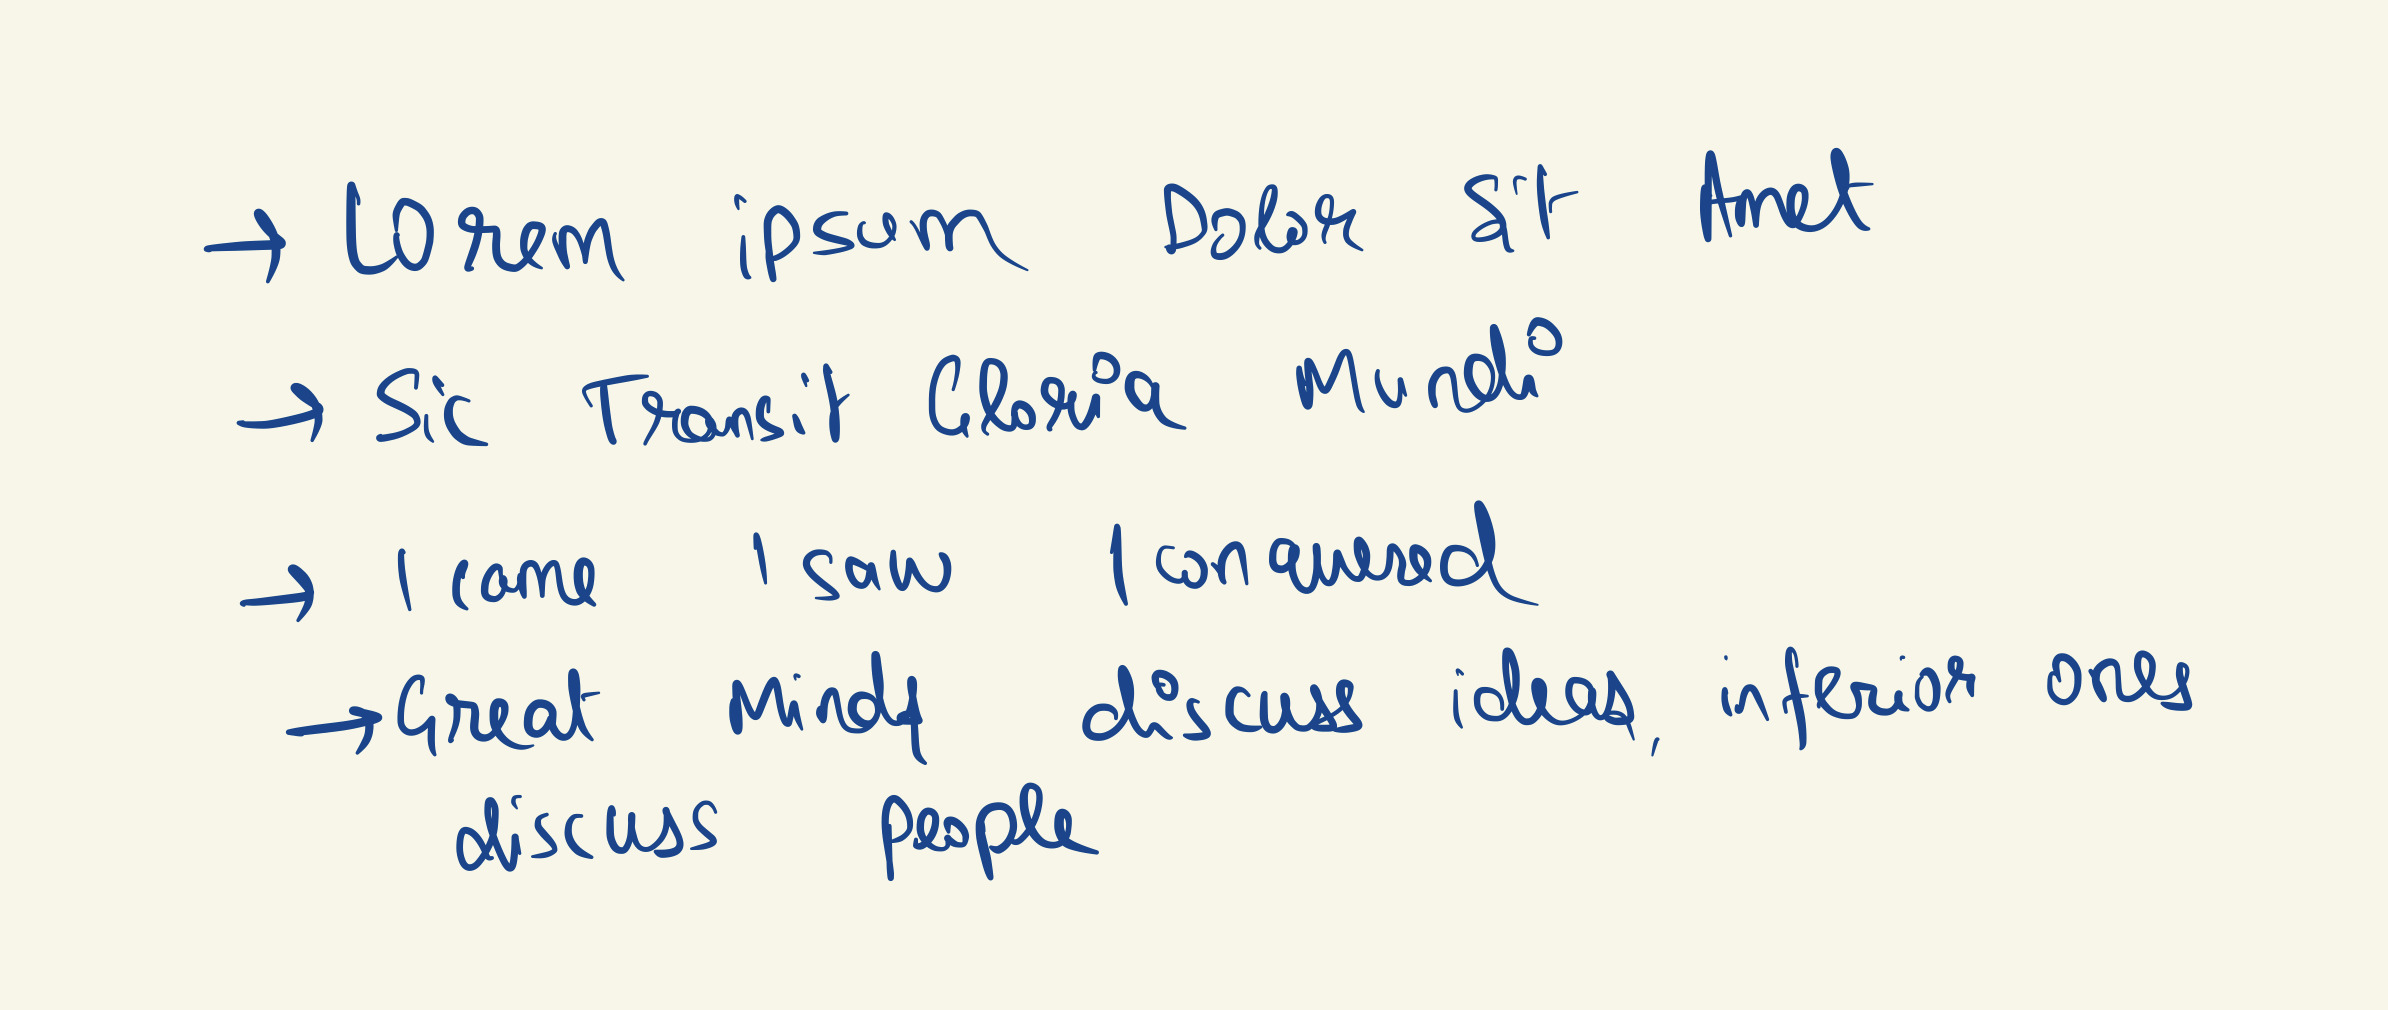 → Lorem ipsum Dolor Sit Amet
→ Sic Transit Gloria Mundi
→ I came I saw I conquered
→ Great Minds discuss ideas, inferior ones
discuss people